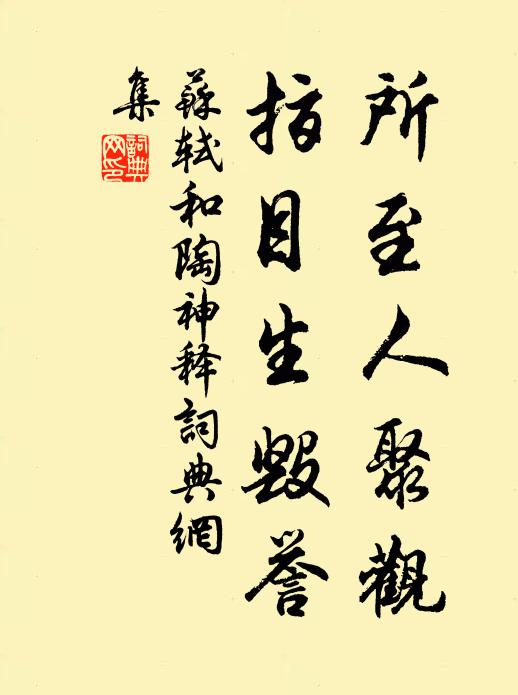 所至人聚觀
指目生毀譽
蘇軾和陶神释詞典網
集
詞典网印